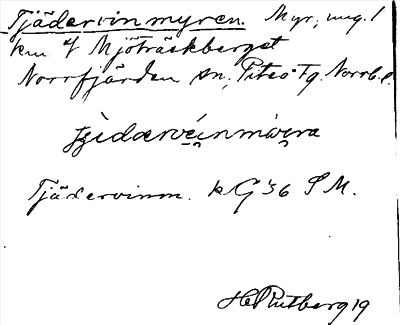 Tjädervinmyren. Myr, ung. 1
km Mjöträskberget
Norrfjärden sn, Piteo Tg. Norrb. l.
Tjädervinm. kG36 SM.
H Rutberg 19